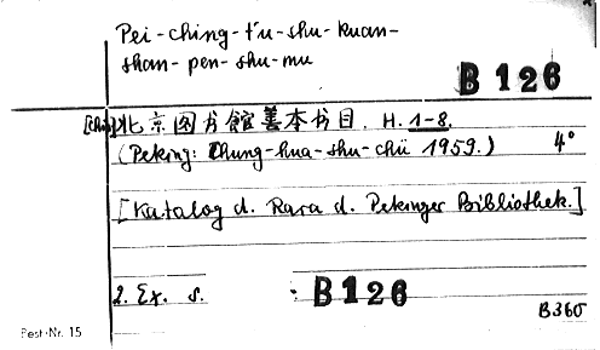 Pei-ching-t'u-shu-kuan-
shan-pen-shu-mu
B 126
[Chin.] 北京図书館善本书目. H. 1-8.
(Peking: Chung-hua-shu-chü 1959.) 4°
[Katalog d. Rara d. Pekinger Bibliothek.]
2. Ex. s. : B 126
B360
Best.-Nr. 15